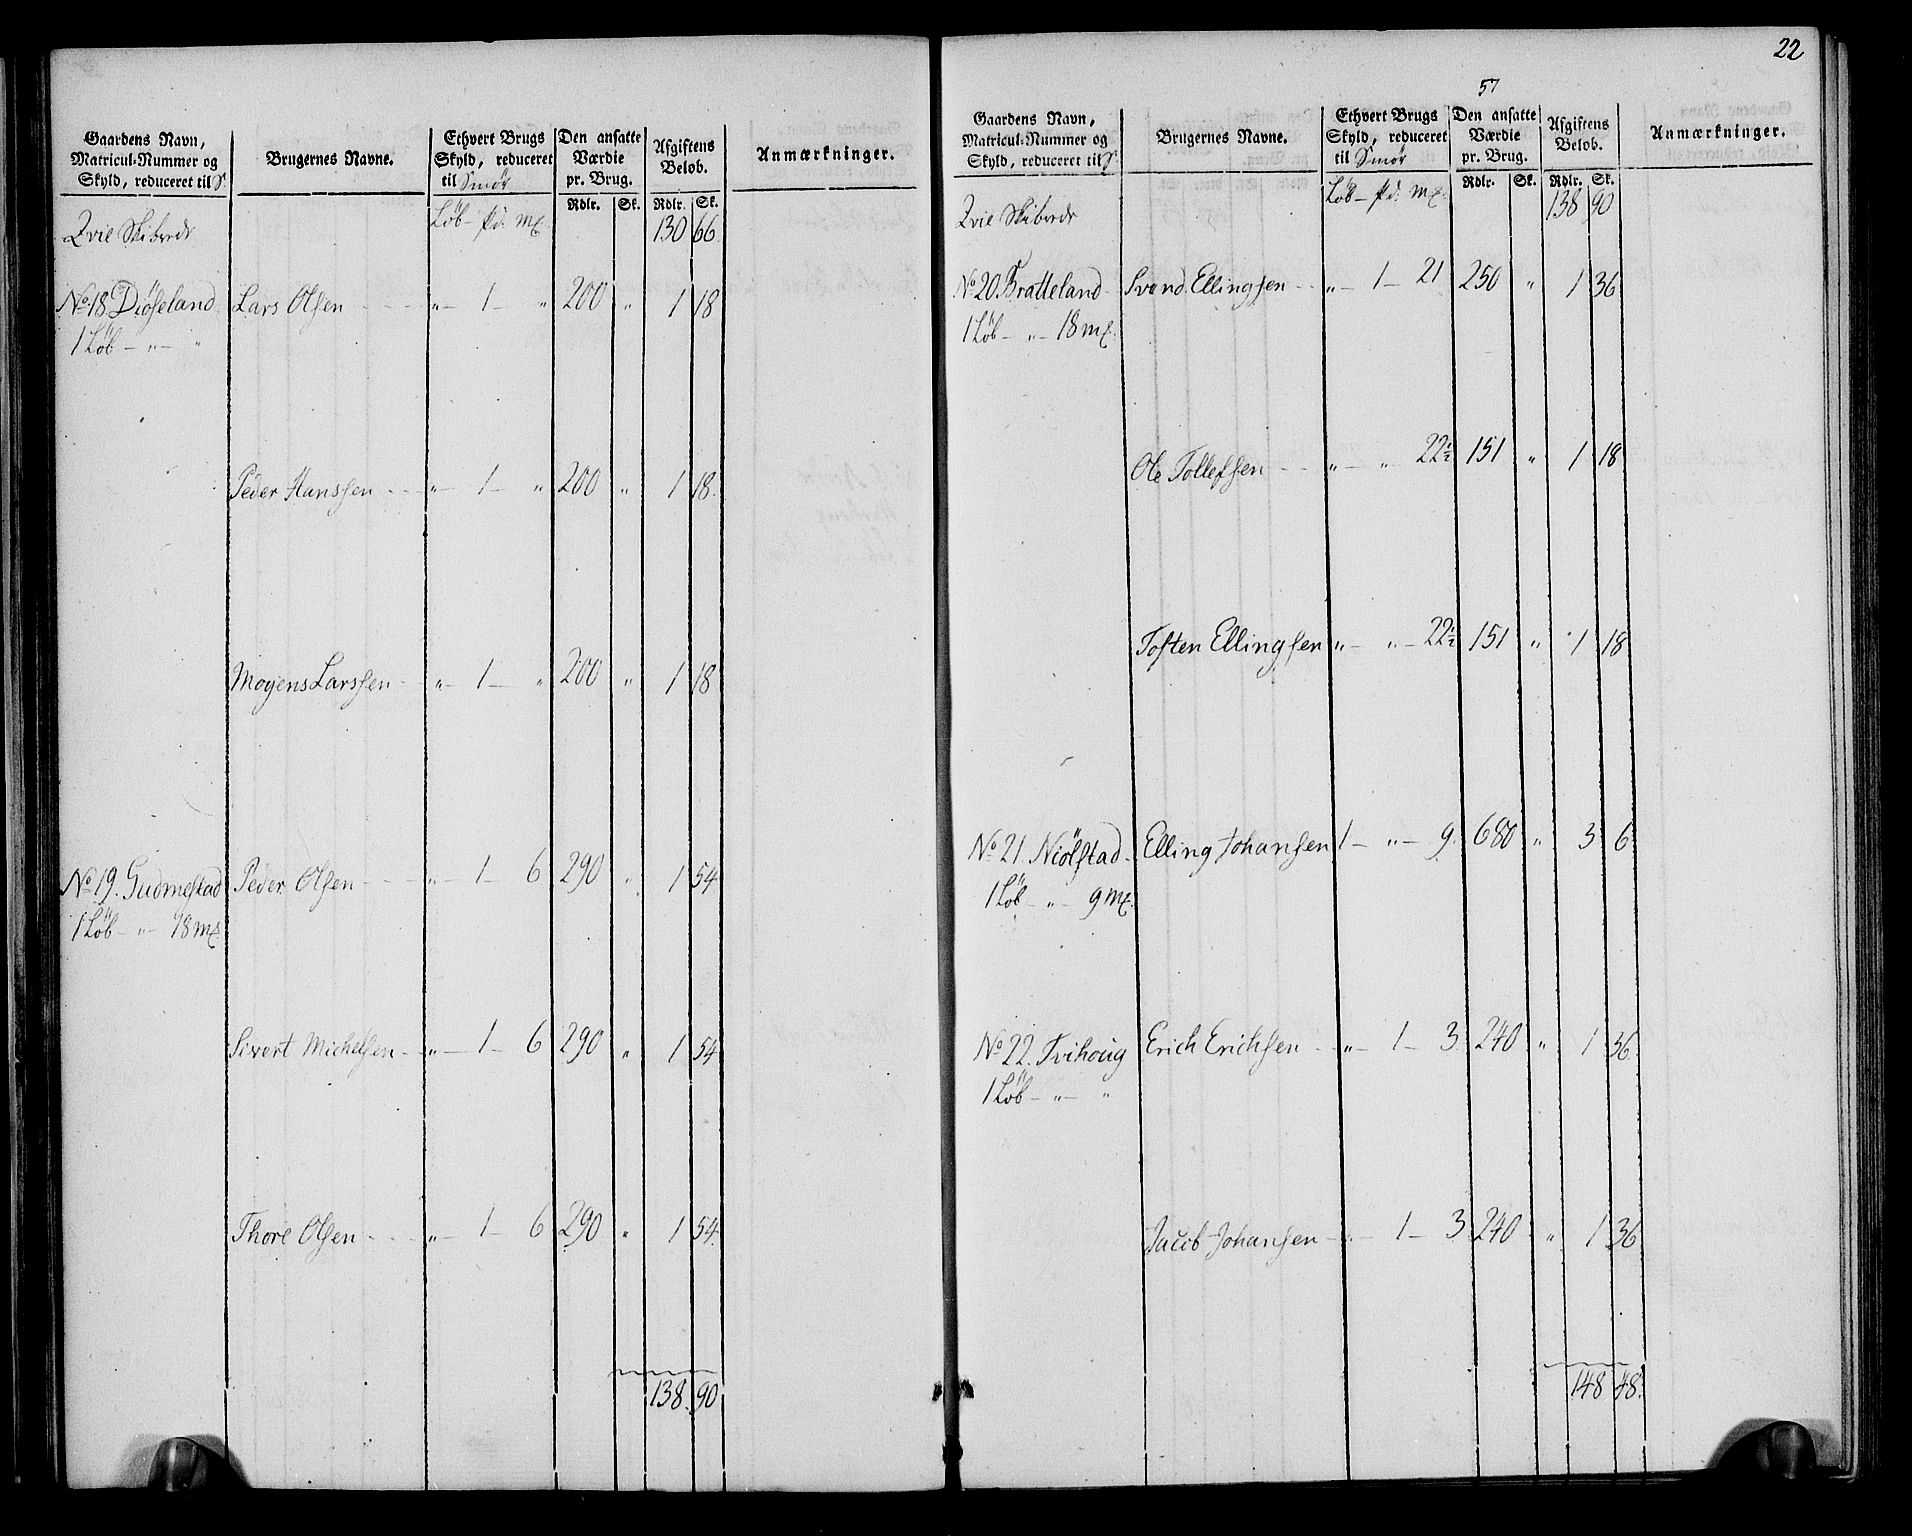 Gaardens Navn,
Matricul-Nummer og
Skyld, reduceret til S.
Brugernes Navne.
Ethvert Brugs
Skyld, reduceret
til Smör
Den ansatte
Værdie
pr. Brug.
Rdlr. Sk.
Afgiftens
Beløb.
Rdlr. Sk.
Anmærkninger.
Qvie Skibrede Löb — pd: m&. 130 66
No. 18 Diöseland Lars Olsen „ — 1 — „ 200 „ 1 18
1 Löb — „ — „
Peder Hanssen „ — 1 — „ 200 „ 1 18.
Mogens Larssen „ — 1 — „ 200 „ 1 18
No. 19. Gudmestad Peder Olsen „ — 1 — 6 290 „ 1 54
1 Löb — „ — 18 m&.
Sivert Michelsen „ — 1 — 6 290 „ 1 54
Thore Olsen „ — 1 — 6 290 „ 1 54.
138. 90
22
57
Gaardens Navn,
Matricul-Nummer og
Skyld, reduceret til S.
Brugernes Navne.
Ethvert Brugs
Skyld, reduceret
til Smör
Den ansatte
Værdie
pr. Brug.
Rdlr. Sk.
Afgiftens
Beløb.
Rdlr. Sk.
Anmærkninger.
Qvie Skibrede Löb — pd: m&. 138 90
No. 20 Bratteland Svend Ellingsen „ — 1 — 21 250 „ 1 36
1 Löb — „ — 18 m&.
Ole Tollefsen „ — „ 22½ 151 „ 1 18
Tosten Ellingsen „ — „ — 22½ 151 „ 1 18
No. 21. Niölstad Elling Johansen 1 — „ — 9. 680 „ 3 6
1 Löb — „ — 9 m&.
No. 22. Tvihoug Erich Erichsen „ — 1 — 3. 240 „ 1 36.
1 Löb — „ — „
Jacob Johansen „ 1 — 3 240 „ 1 36
148 48.